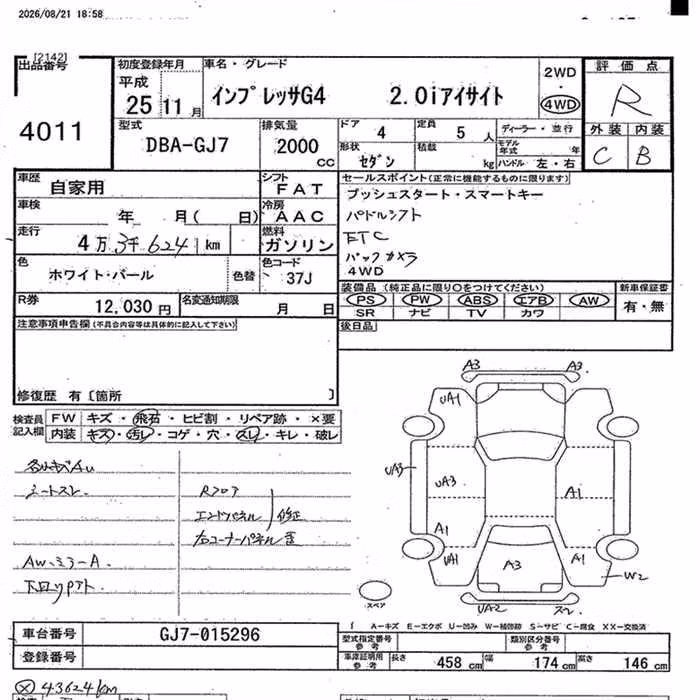 2026/08/21 18:58
[2142]
出品番号
4011
初度登録年月
平成
25 11 月
車名・グレード
インプレッサG4 2.0iアイサイト
2WD
4WD
評価点
R
外装 内装
C B
型式
DBA-GJ7
排気量
2000
CC
ドア
4
定員
5 人
ディーラー・並行
形状
セダン
積載
kg
モデル年式 年
ハンドル 左・右
車歴
自家用
シフト
FAT
車検
年 月( 日)
冷房
AAC
走行
4万3千624 km
燃料
ガソリン
色
ホワイト・パール
色替
色コード
37J
R券
12,030 円
名変通知期限
月 日
セールスポイント(正常に機能するものに限ります)
プッシュスタート・スマートキー
パドルシフト
ETC
バックカメラ
4WD
装備品(純正品に限り○をつけてください)
PS PW ABS エアB AW
SR ナビ TV カワ
新車保証書
有・無
後日品
注意事項申告欄(不具合内容等は具体的に記入して下さい)
修復歴 有〔箇所 〕
検査員記入欄
FW キズ・飛石・ヒビ割・リペア跡・×要
内装 キズ・汚レ・コゲ・穴・スレ・キレ・破レ
シートスレ.
Rフロア
エンドパネル 修正
右コーナーパネル歪
AW.ミラーA.
A3 A3
UA1
UA3
UA3
A1
A1
UA1
A3
A1
W2
UA2
スレ
スペア
A-キズ E-エクボ U-凹み W-補修跡 S-サビ C-腐食 XX-交換済
車台番号
GJ7-015296
登録番号
型式指定番号
参考
類別区分番号
参考
車庫証明用
参考
長さ 458 cm 幅 174 cm 高さ 146 cm
43624km